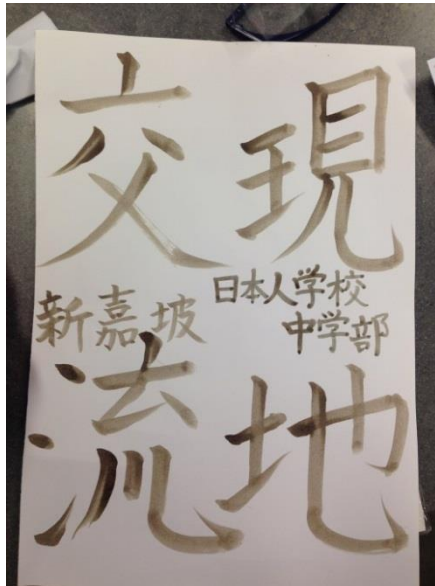 現地
交流
日本人学校
中学部
新嘉坡